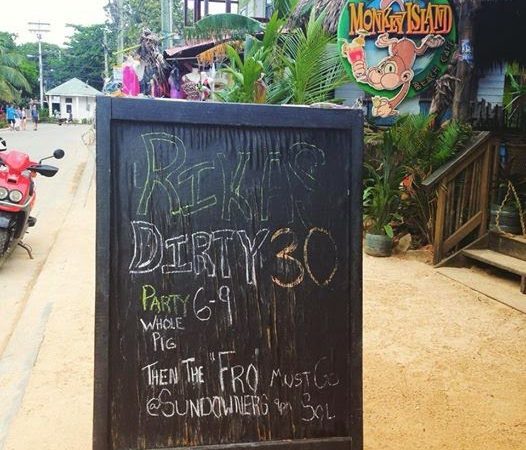 MONKEY ISLAND
RIKAS
DIRTY 30
PARTY 6-9
WHOLE
PIG
THEN THE "FRO" MUST GO
@SUNDOWNERS 9pm SOL